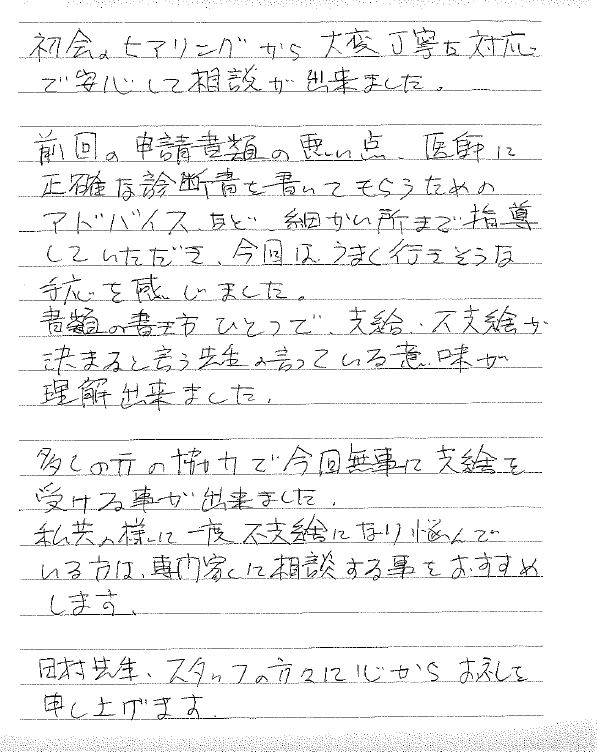 初会のヒアリングから大変丁寧な対応
で安心して相談が出来ました。
前回の申請書類の悪い点、医師に
正確な診断書を書いてもらうための
アドバイスなど、細かい所まで指導
していただき、今回はうまく行きそうな
手応を感じました。
書類の書き方ひとつで、支給、不支給が
決まると言う先生の言っている意味が
理解出来ました。
多くの方の協力で今回無事に支給を
受ける事が出来ました。
私共の様に一度不支給になり悩んで
いる方は、専門家に相談する事をおすすめ
します。
田村先生、スタッフの方々に心からお礼を
申し上げます。